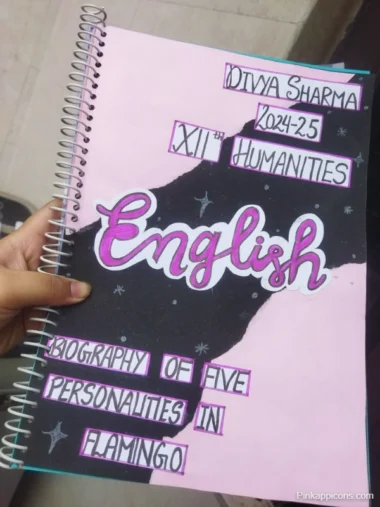 DIVYA SHARMA
2024-25
XIIth HUMANITIES
English
BIOGRAPHY OF FIVE
PERSONALITIES IN
FLAMINGO
Pinkappicons.com